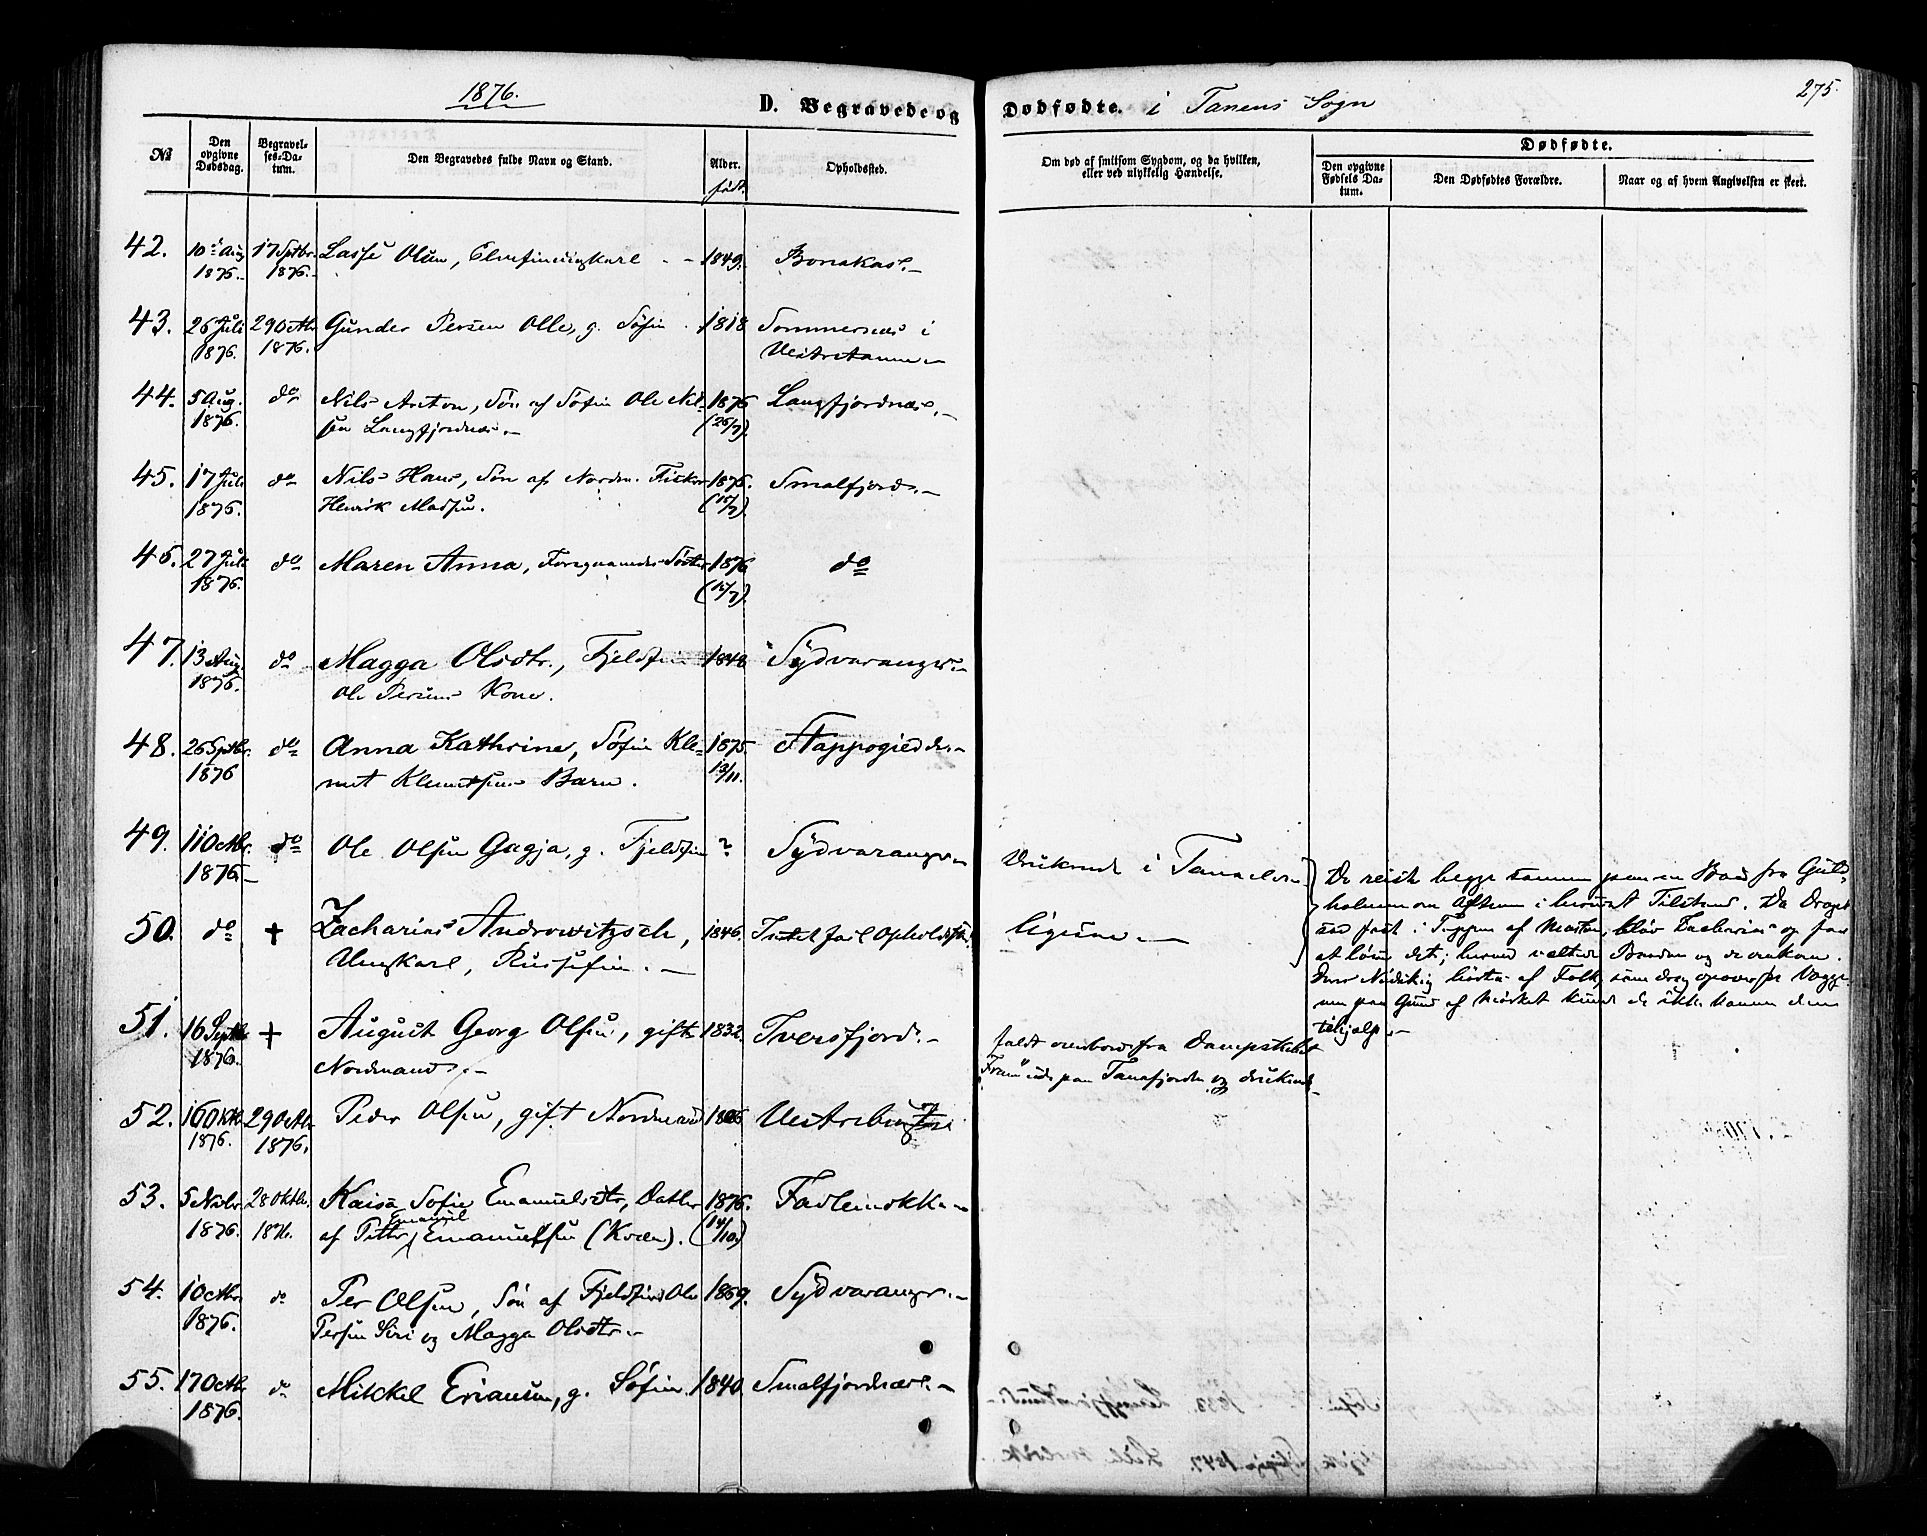 1876.
D. Begravede og Dødfødte. i Tanens Sogn
275.
№
Den opgivne Dødsdag.
Begravelses-Datum.
Den Begravedes fulde Navn og Stand.
Alder.
født
Opholdsted.
Om død af smitsom Sygdom, og da hvilken, eller ved ulykkelig Hændelse.
Dødfødte.
Den opgivne Fødsels Datum.
Den Dødfødtes Forældre.
Naar og af hvem Angivelsen er skeet.
42. 10 Aug 17 Sptbr. Lasse Olsen, Elvefin ungkarl - 1849. Bonakas.-
1876.- 1876.-
43. 26 Juli 29 Octbr Gunder Persen Olle, g. Søfin 1818 Sommernes i
1876. 1876. Vestretanen.-
44. 5 Aug. do Nils Anton, Søn af Søfin Ole Nil- 1876 Langfjordnæs.-
1876. sen Langfjordnæs.- (26/7).
45. 17 Juli do Nils Hans, Søn af Nordm. Fisker 1876. Smalfjord.-
1876. Henrik Madsen. (15/7).
46. 27 Juli do Maren Anna, Foregaaendes Søster 1876 do
1876. (15/7).
47. 13 Aug. do Magga Olsdtr., Fjeldfin 1848 Sydvaranger.-
1876. Ole Persens Kone.
48. 26 Sptbr. do Anna Kathrine, Søfin Kle- 1875. Stappogiedde.-
1876 met Klemetsens Barn. 13/11.
49. 11 Octbr. do Ole Olsen Gagja, g. Fjeldfin ? Sydvaranger Druknede i Tanaelven
1876.-
50. do + Zacharias Androwitzsch, 1846. Intet fast Opholdsst. ligesaa.-
Ungkarl, Russefin.-
De reiste begge sammen paa en Baad fra Guld-
holmen om Aftenen i beruset Tilstand. Da Draget
sad fast i Toppen af Masten, kløv Zacharias op for
at løsne det; herved veltede Baaden og de omkom.
Deres Nødskrig hørtes af Folk, som
paa Grund af Mørket kunde de ikke komme dem
tilhjælp.-
51. 16 Septbr + August Georg Olsen, gift 1832. Iversfjord.- faldt overbord fra Dampskibet
1876. Nordmand.- "Fram" ude paa Tanafjorden og druknede.-
52. 16 Oktbr 29 Octbr Peder Olsen, gift Nordmand 1806 Vestre
1876. 1876.
53. 5 Novbr 28 Oktbr. Kaisa Sofie Emanuelsdtr, Datter 1876. Fadlemokka.-
1876. 1876. af Petter Emanuel Emanuelsen (Kvæn). (14/10)
54. 1 Octbr. do Per Olsen, Søn af Fjeldfin Ole 1869. Sydvaranger.-
1876. Persen Siri og Magga Olsdtr.-
55. 17 Octbr. do Mikkel Eriansen, g. Søfin. 1840 Smalfjordnæs.-
1876.